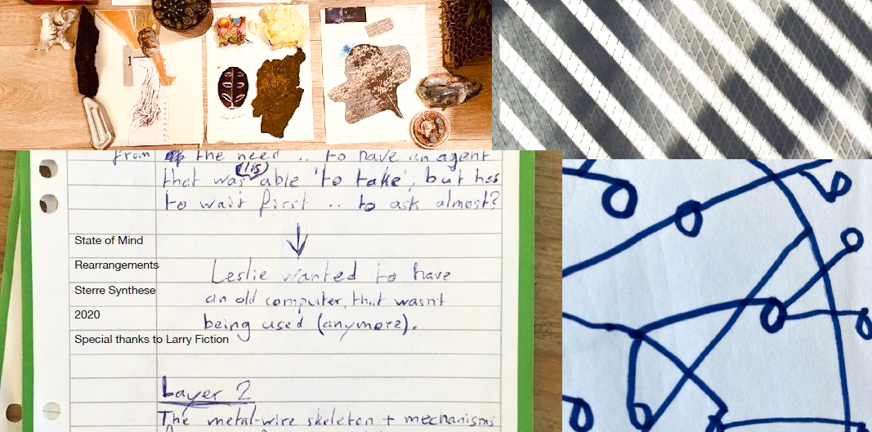 from the need .. to have an agent
that was (is) able 'to take', but has
to wait first .. to ask almost?
State of Mind
Rearrangements
Sterre Synthese
2020
Special thanks to Larry Fiction
Leslie wanted to have
an old computer, that wasnt
being used (anymore).
Layer 2
The metal-wire skeleton + mechanisms